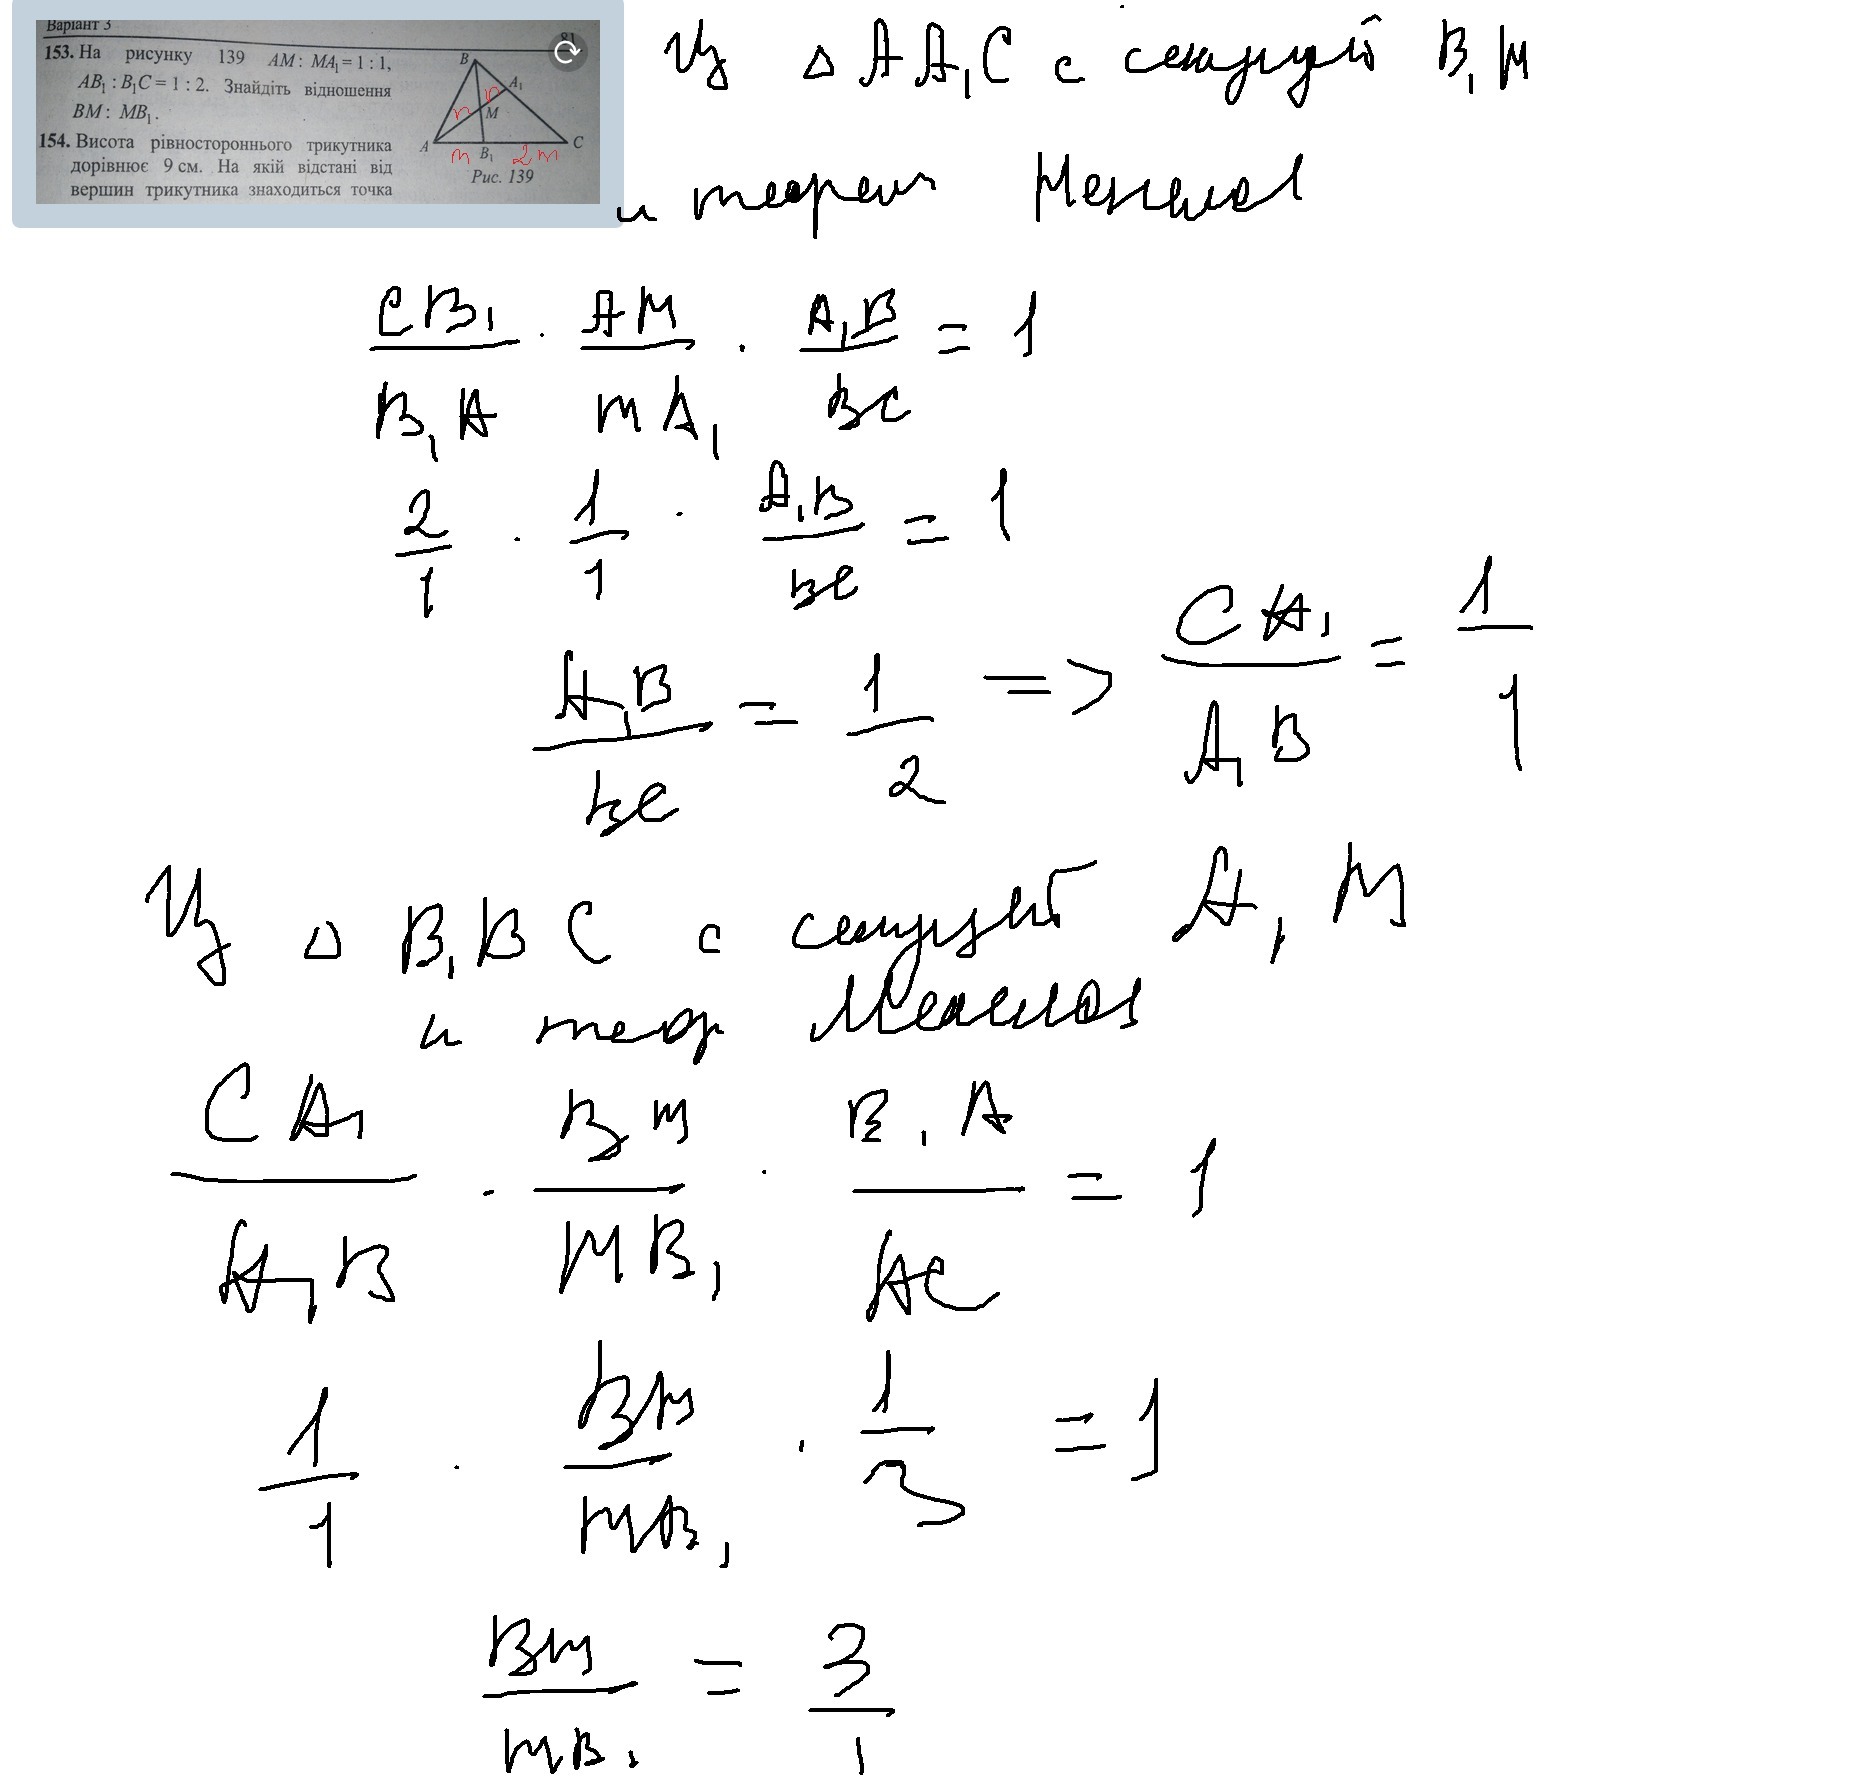 Варіант 3
81
153. На рисунку 139 AM : MA₁ = 1 : 1,
AB₁ : B₁C = 1 : 2. Знайдіть відношення
BM : MB₁.
154. Висота рівностороннього трикутника
дорівнює 9 см. На якій відстані від
вершин трикутника знаходиться точка
B
A₁
n
n
M
A
B₁
C
m
2m
Рис. 139
Из △ AA₁C с секущей B₁M
и теорем Менелая
CB₁/B₁A · AM/MA₁ · A₁B/BC = 1
2/1 · 1/1 · A₁B/BC = 1
A₁B/BC = 1/2 => CA₁/A₁B = 1/1
Из △ B₁BC с секущей A₁M
и теор Менелая
CA₁/A₁B · BM/MB₁ · B₁A/AC = 1
1/1 · BM/MB₁ · 1/3 = 1
BM/MB₁ = 3/1